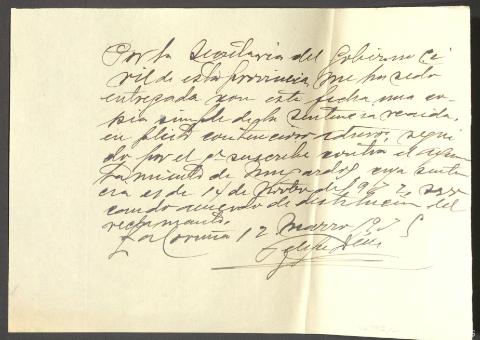 Por la Secretaria del Gobierno Ci
vil de esta provincia, me ha sido
entregada con esta fecha una co
pia simple de la sentencia recaida,
en pleito contencioso advo, segui
do por el q suscribe contra el Ayun
tamiento de Mugardos, cuya senten
cia es de 14 de de 193 y
cando acuerdo de destitución del
reclamante.
La Coruña 12 Marzo 1935
Felipe